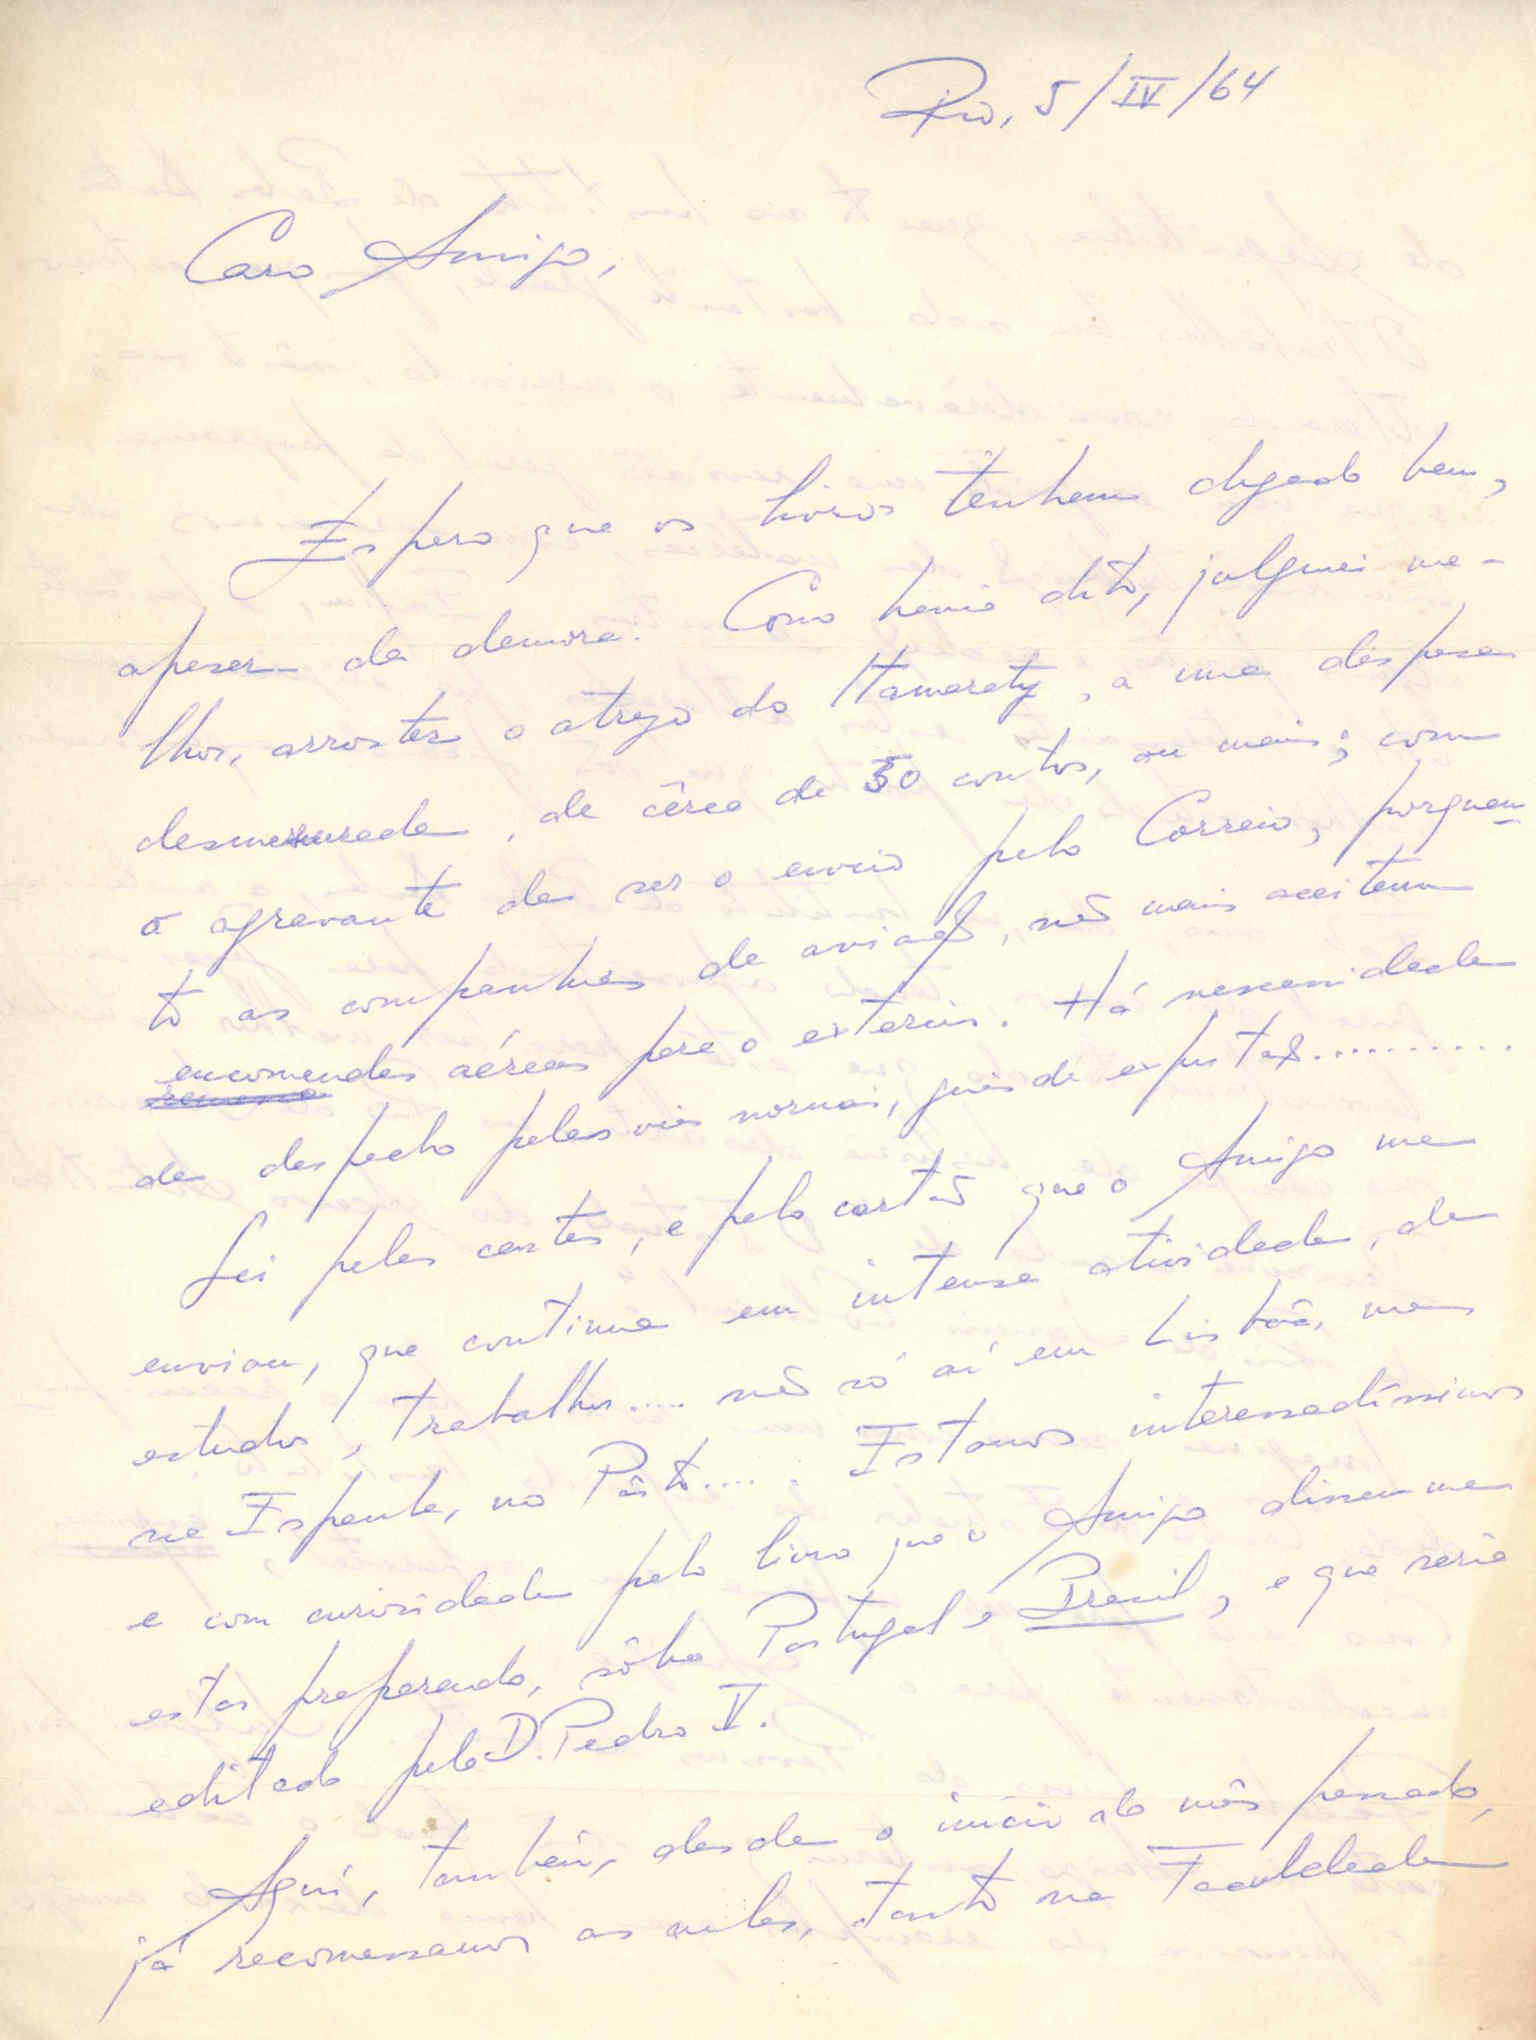 Rio, 5/IV/64
Caro Amigo,
Espero que os livros tenham chegado bem,
apesar da demora. Como havia dito, julguei me-
lhor, arrostar o atrazo do Itamaraty, a uma despesa
desmesurada, de cêrca de 50 contos, ou mais; com
a agravante de ser o envio pelo Correio, porquan-
to as companhias de aviação, não mais aceitam
encomendas aéreas para o exterior. Há necessidade
de despacho pelas vias normais, guias de exportação..........
Sei pelas cartas, e pelo cartão que o Amigo me
enviou, que continua em intensa atividade, de
estudos, trabalhos.... não só aí em Lisbôa, mas
na Espanha, no Pôrto..... Estamos interessadíssimos
e com curiosidade pelo livro que o Amigo disse-me
estar preparando, sôbre Portugal e Brasil, e que seria
editado pelo D. Pedro V.
Aqui, também, desde o início do mês passado,
já recomessamos as aulas, tanto na Faculdade